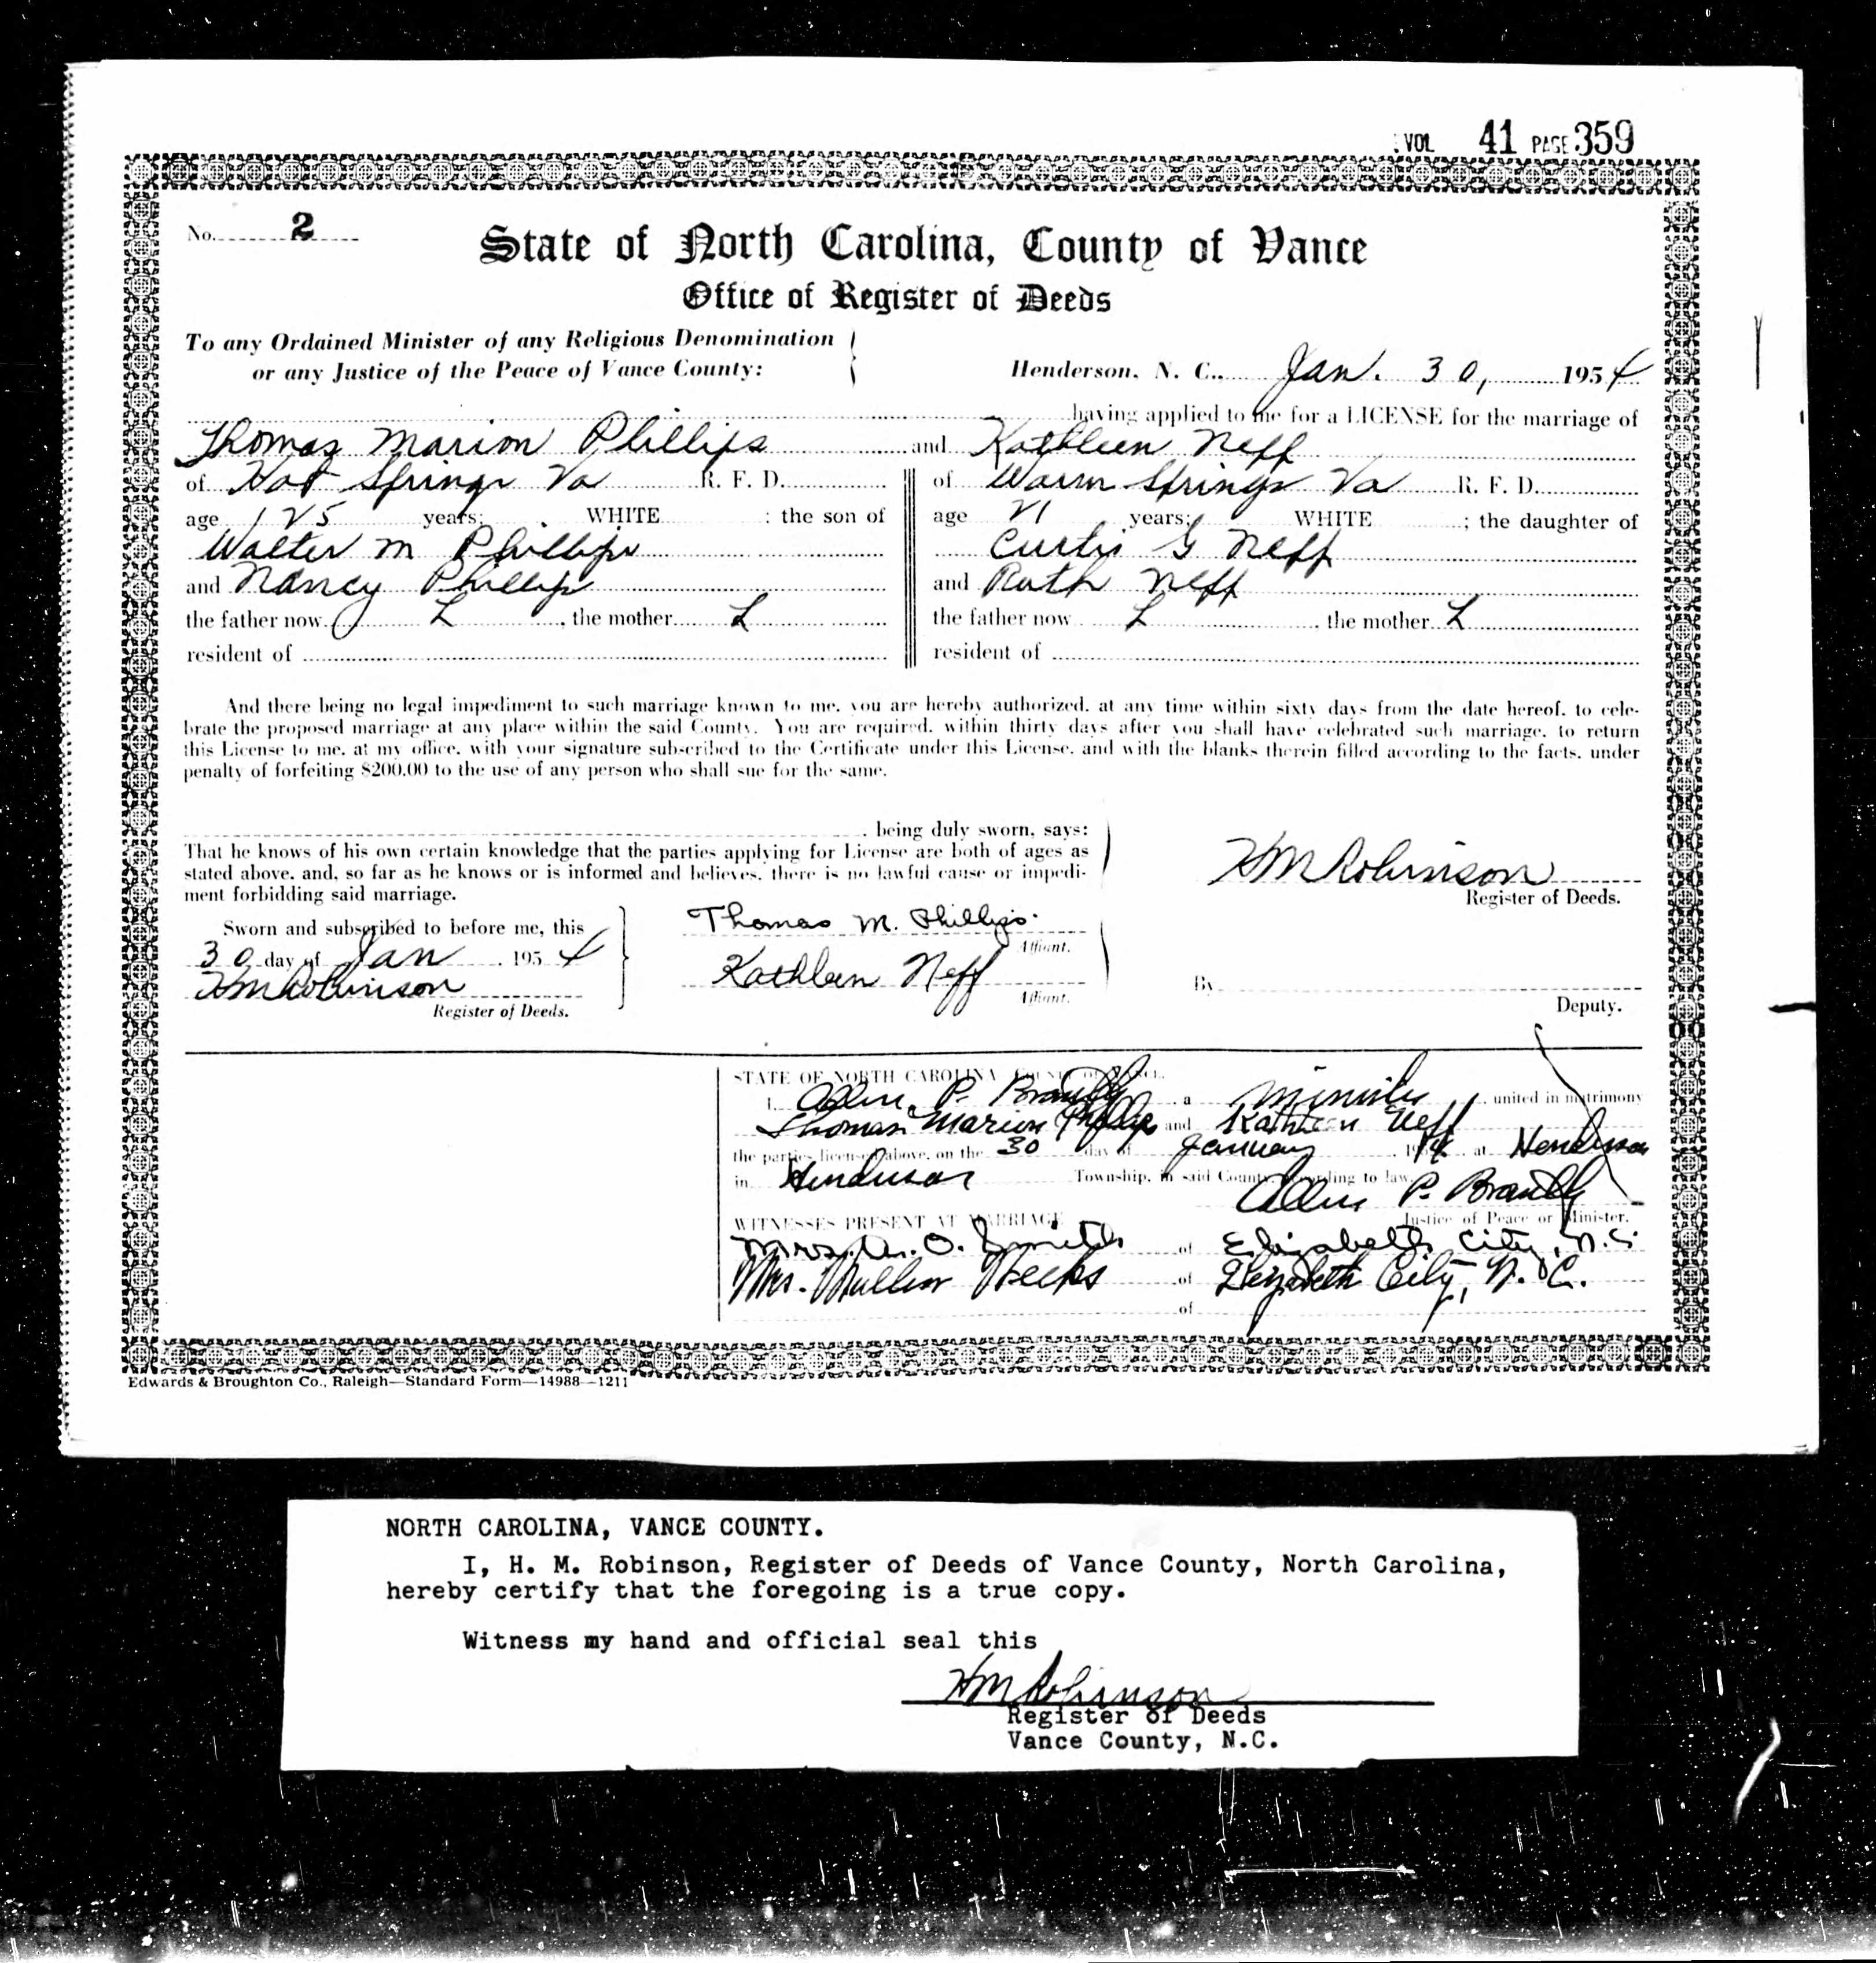 VOL 41 PAGE 359
No. 2
State of North Carolina, County of Vance
Office of Register of Deeds
To any Ordained Minister of any Religious Denomination
or any Justice of the Peace of Vance County:
Henderson, N. C., Jan. 30, 1954
having applied to me for a LICENSE for the marriage of
Thomas Marion Phillips and Kathleen Neff
of Hot Springs Va R. F. D. of Warm Springs Va R. F. D.
age 25 years; WHITE : the son of age 21 years; WHITE ; the daughter of
Walter M Phillips Curtis G Neff
and Nancy Phillips and Ruth Neff
the father now L , the mother L the father now L , the mother L
resident of resident of
And there being no legal impediment to such marriage known to me, you are hereby authorized, at any time within sixty days from the date hereof, to cele-
brate the proposed marriage at any place within the said County. You are required, within thirty days after you shall have celebrated such marriage, to return
this License to me, at my office, with your signature subscribed to the Certificate under this License, and with the blanks therein filled according to the facts, under
penalty of forfeiting $200.00 to the use of any person who shall sue for the same.
, being duly sworn, says:
That he knows of his own certain knowledge that the parties applying for License are both of ages as
stated above, and, so far as he knows or is informed and believes, there is no lawful cause or impedi-
ment forbidding said marriage.
HM Robinson
Register of Deeds.
Sworn and subscribed to before me, this
30 day of Jan , 1954
HM Robinson
Register of Deeds.
Thomas M. Phillips.
Affiant.
Kathleen Neff
Affiant.
By
Deputy.
STATE OF NORTH CAROLINA, COUNTY OF VANCE.
I, Allen P. Brantly , a Minister , united in matrimony
Thomas Marion Phillips and Kathleen Neff
the parties licensed above, on the 30 day of January , 1954 at Henderson
in Henderson Township, in said County, according to law.
Allen P. Brantly
Justice of Peace or Minister.
WITNESSES PRESENT AT MARRIAGE
Mrs. O. Smith of Elizabeth City, N.C.
Mrs. Weeks of Elizabeth City, N. C.
of
Edwards & Broughton Co., Raleigh—Standard Form—14988—1211
NORTH CAROLINA, VANCE COUNTY.
I, H. M. Robinson, Register of Deeds of Vance County, North Carolina,
hereby certify that the foregoing is a true copy.
Witness my hand and official seal this
HM Robinson
Register of Deeds
Vance County, N.C.